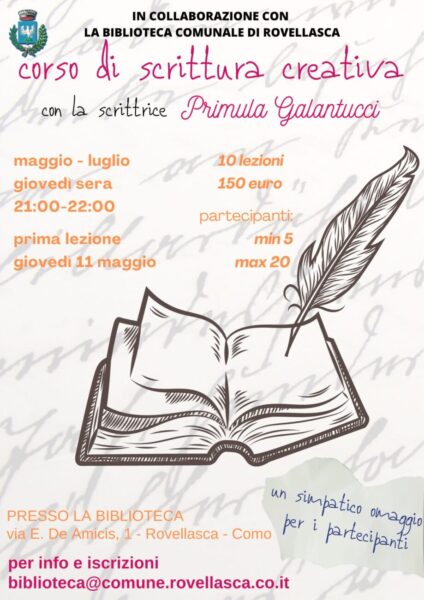 IN COLLABORAZIONE CON
LA BIBLIOTECA COMUNALE DI ROVELLASCA
corso di scrittura creativa
con la scrittrice Primula Galantucci
maggio - luglio
giovedì sera
21:00-22:00
prima lezione
giovedì 11 maggio
10 lezioni
150 euro
partecipanti:
min 5
max 20
un simpatico omaggio
per i partecipanti
PRESSO LA BIBLIOTECA
via E. De Amicis, 1 - Rovellasca - Como
per info e iscrizioni
biblioteca@comune.rovellasca.co.it